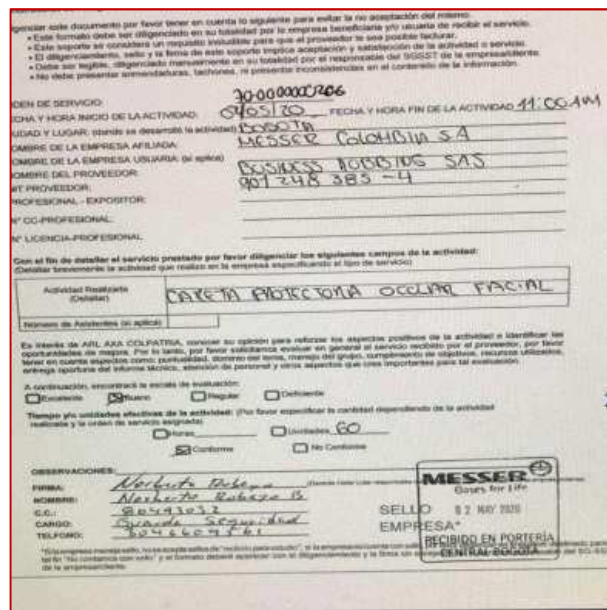 este documento por favor tener en cuenta lo siguiente para evitar la no aceptación del mismo.
• Este formato debe ser diligenciado en su totalidad por la empresa beneficiaria y/o usuaria de recibir el servicio.
• Este soporte se considera un requisito ineludible para que el proveedor le sea posible facturar.
• El diligenciamiento, sello y la firma de este soporte implica aceptación y satisfacción de la actividad o servicio.
• Debe ser legible, diligenciado manualmente en su totalidad por el responsable del SGSST de la empresa/cliente.
• No debe presentar enmendaduras, tachones, ni presentar inconsistencias en el contenido de la información.
DE SERVICIO:
Y HORA INICIO DE LA ACTIVIDAD: 04/05/20 FECHA Y HORA FIN DE LA ACTIVIDAD 11:00 AM
Y LUGAR: (donde se desarrolló la actividad) BOGOTA
DE LA EMPRESA AFILIADA: MESSER COLOMBIA SA
DE LA EMPRESA USUARIA: (si aplica)
DEL PROVEEDOR: BUSINESS SAS
PROVEEDOR: 901 248 383-4
PROFESIONAL - EXPOSITOR:
N° CC-PROFESIONAL:
N° LICENCIA-PROFESIONAL
Con el fin de detallar el servicio prestado por favor diligenciar los siguientes campos de la actividad:
(Detallar brevemente la actividad que realizo en la empresa especificando el tipo de servicio)
Actividad Realizada
(Detallar)
CARETA PROTECTORA OCULAR FACIAL
Número de Asistentes (si aplica)
Es interés de ARL AXA COLPATRIA, conocer su opinión para reforzar los aspectos positivos de la actividad e identificar las
oportunidades de mejora. Por lo tanto, por favor solicitamos evaluar en general el servicio recibido por el proveedor, por favor
tener en cuenta aspectos como: puntualidad, dominio del tema, manejo del grupo, cumplimiento de objetivos, recursos utilizados,
entrega oportuna del informe técnico, atención de personal y otros aspectos que crea importantes para tal evaluación.
A continuación, encontrará la escala de evaluación:
Excelente Bueno Regular Deficiente
Tiempo y/o unidades efectivas de la actividad: (Por favor especificar la cantidad dependiendo de la actividad
realizada y la orden de servicio asignada)
Horas Unidades 60
Conforme No Conforme
OBSERVACIONES:
FIRMA: Norberto
NOMBRE: Norberto B
C.C.: 80493032
CARGO: Guarda Seguridad
TELEFONO:
MESSER
Gases for Life
SELLO
EMPRESA*
02 MAY 2020
RECIBIDO EN PORTERÍA
CENTRAL BOGOTÁ
de la empresa/cliente.